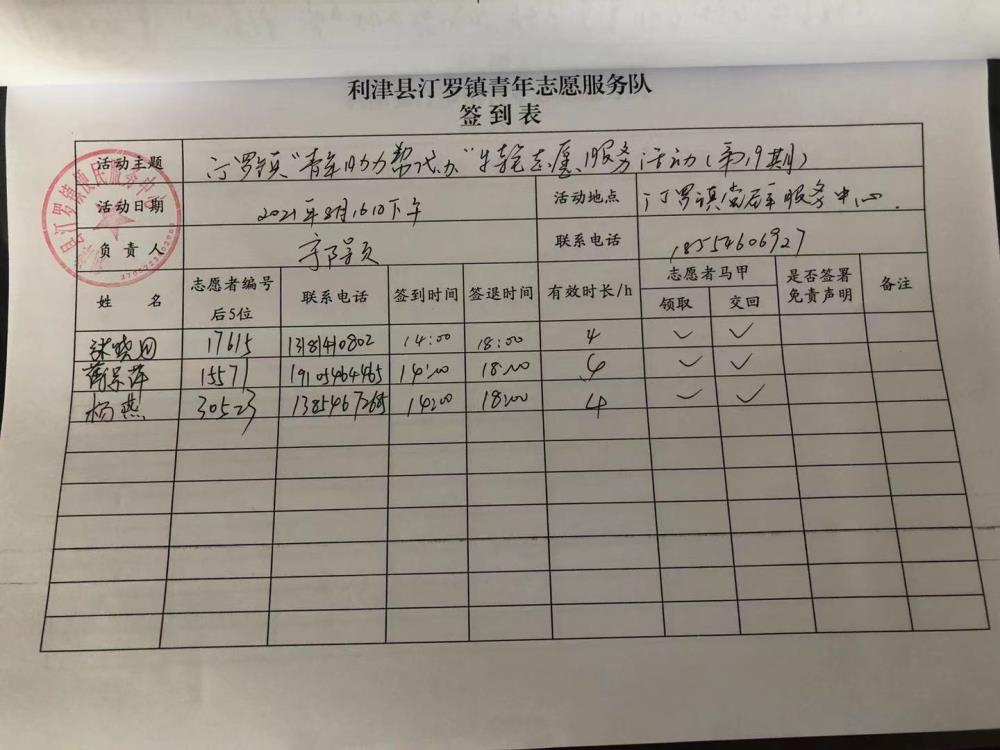 利津县汀罗镇青年志愿服务队
签到表
活动主题 汀罗镇"青年助力帮代办"专题志愿服务活动(第19期)
活动日期 2021年8月16日下午 活动地点 汀罗镇党群服务中心
负责人 联系电话 18554606927
姓名 志愿者编号后5位 联系电话 签到时间 签退时间 有效时长/h 志愿者马甲 领取 交回 是否签署免责声明 备注
17615 14:00 18:00 4 ✓ ✓
15571 19105464465 14:00 18:00 4 ✓ ✓
杨燕 30523 14:00 18:00 4 ✓ ✓
县汀罗镇便民服务中心